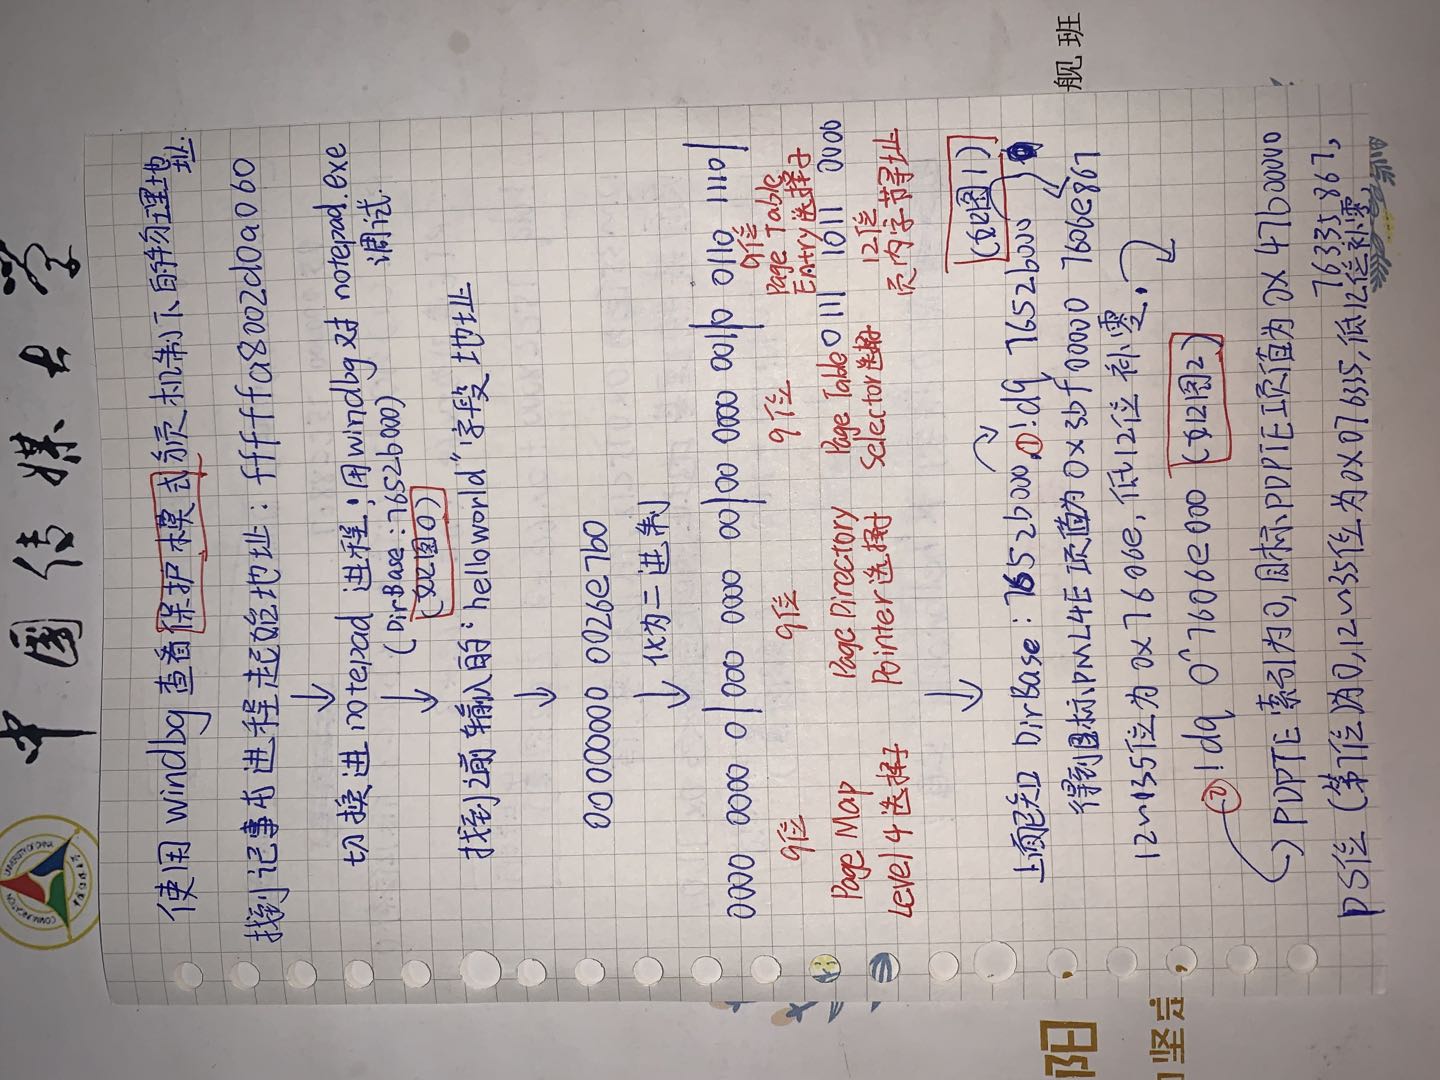 中国传媒大学
COMMUNICATION UNIVERSITY OF CHINA
中国传媒大学
使用 windbg 查看保护模式页机制下的物理地址.
找到记事本进程起始地址: fffffa8002d0a060
切换进 notepad 进程; 用windbg 对 notepad.exe 调试.
(DirBase: 7652b000)
(如图0)
找到之前输入的"helloworld"字段地址
00000000 0026e7b0
化为二进制
0000 0000 0|000 0000 00|00 0000 001|0 0110 1110|
9位 9位 9位 9位
Page Map Level 4 选择子
Page Directory Pointer 选择子
Page Table Selector 选择子
Page Table Entry 选择子
0111 1011 0000
12位
页内字节寻址
(如图1)
上面已知 DirBase: 7652b000, ① !dq 7652b000
得到目标PML4E项值为 0x3bf00000 7606e867
12~35位为 0x7606e, 低12位补零.
② !dq 0^7606e000 (如图2)
PDPTE 索引为0, 目标PDPTE项值为 0x47b00000 76335867,
PS位 (第7位)为0, 12~35位为0x076335, 低12位补零,
阳
舰班
坚定,